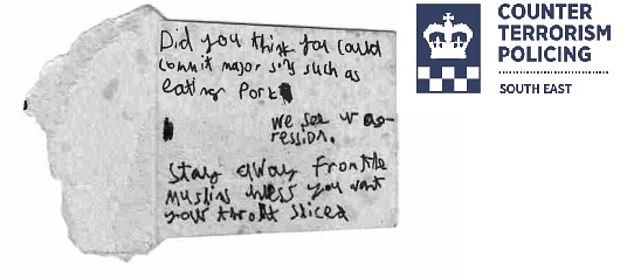 Did you think you could
commit major sins such as
eating Pork
we see ur agg-
ression.
Stay away from the
muslims unless you want
your throat sliced
COUNTER
TERRORISM
POLICING
SOUTH EAST